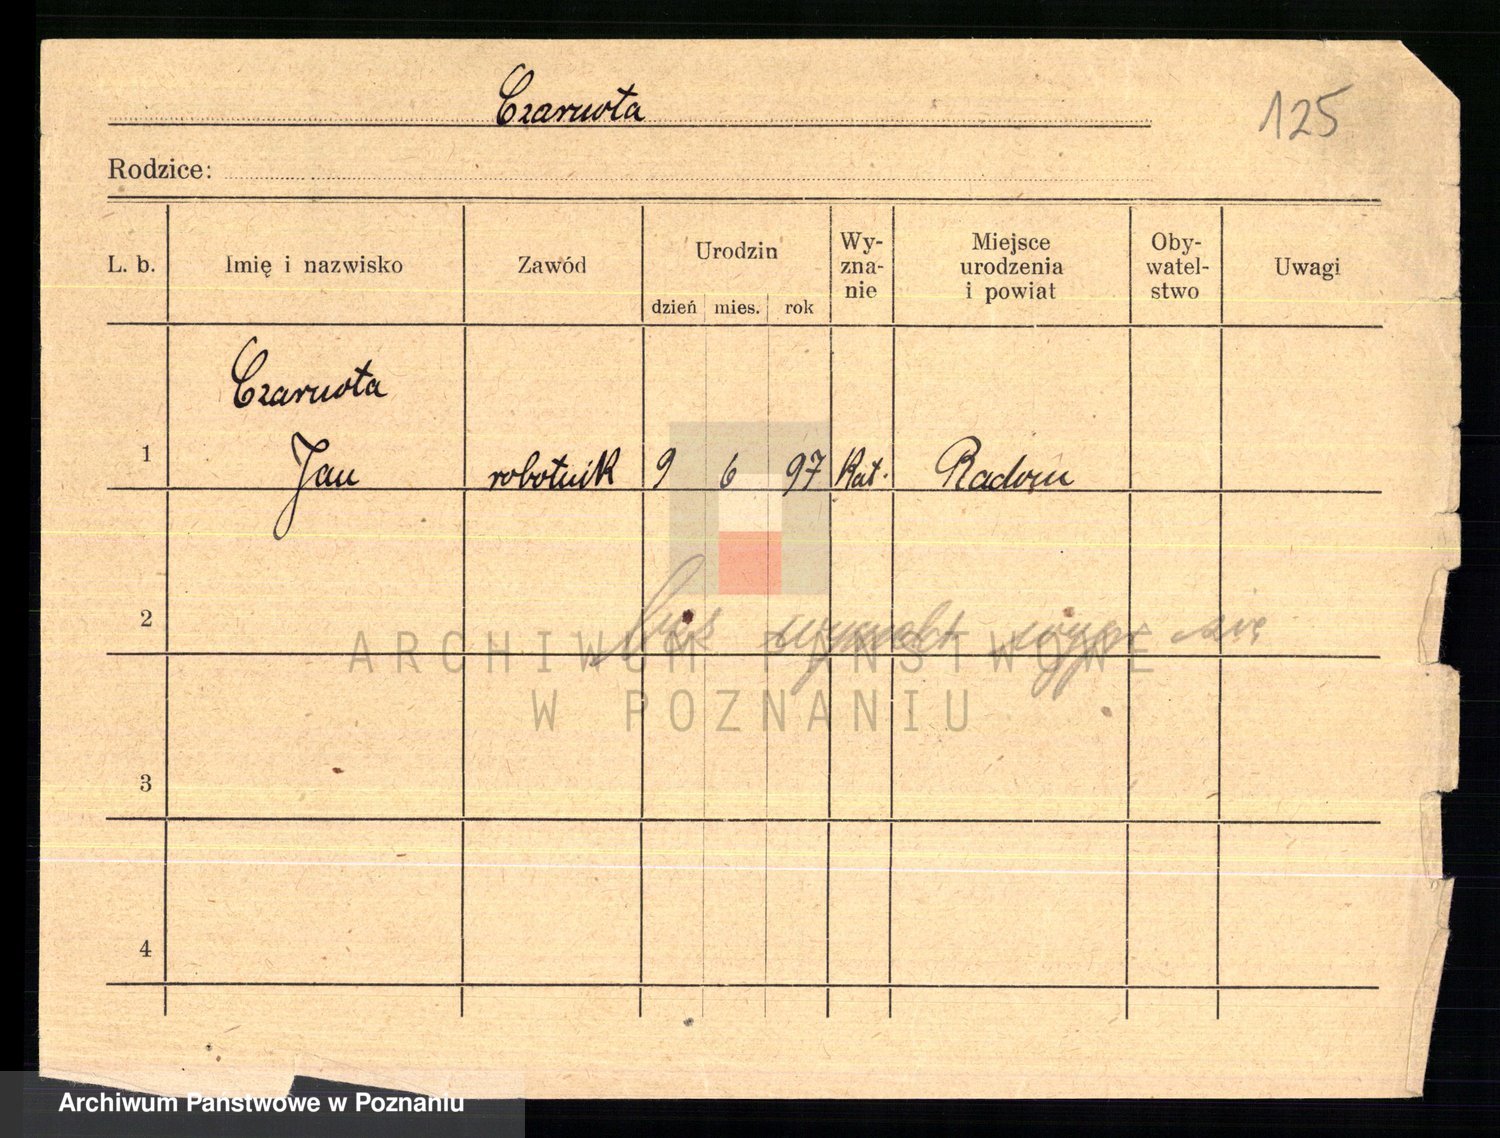 Czarnota
125
Rodzice:
L. b.
Imię i nazwisko
Zawód
Urodzin
dzień
mies.
rok
Wy-
zna-
nie
Miejsce
urodzenia
i powiat
Oby-
watel-
stwo
Uwagi
Czarnota
1 Jan robotnik 9 6 97 Kat. Radom
2
się
ARCHIWUM PAŃSTWOWE
W POZNANIU
3
4
Archiwum Państwowe w Poznaniu